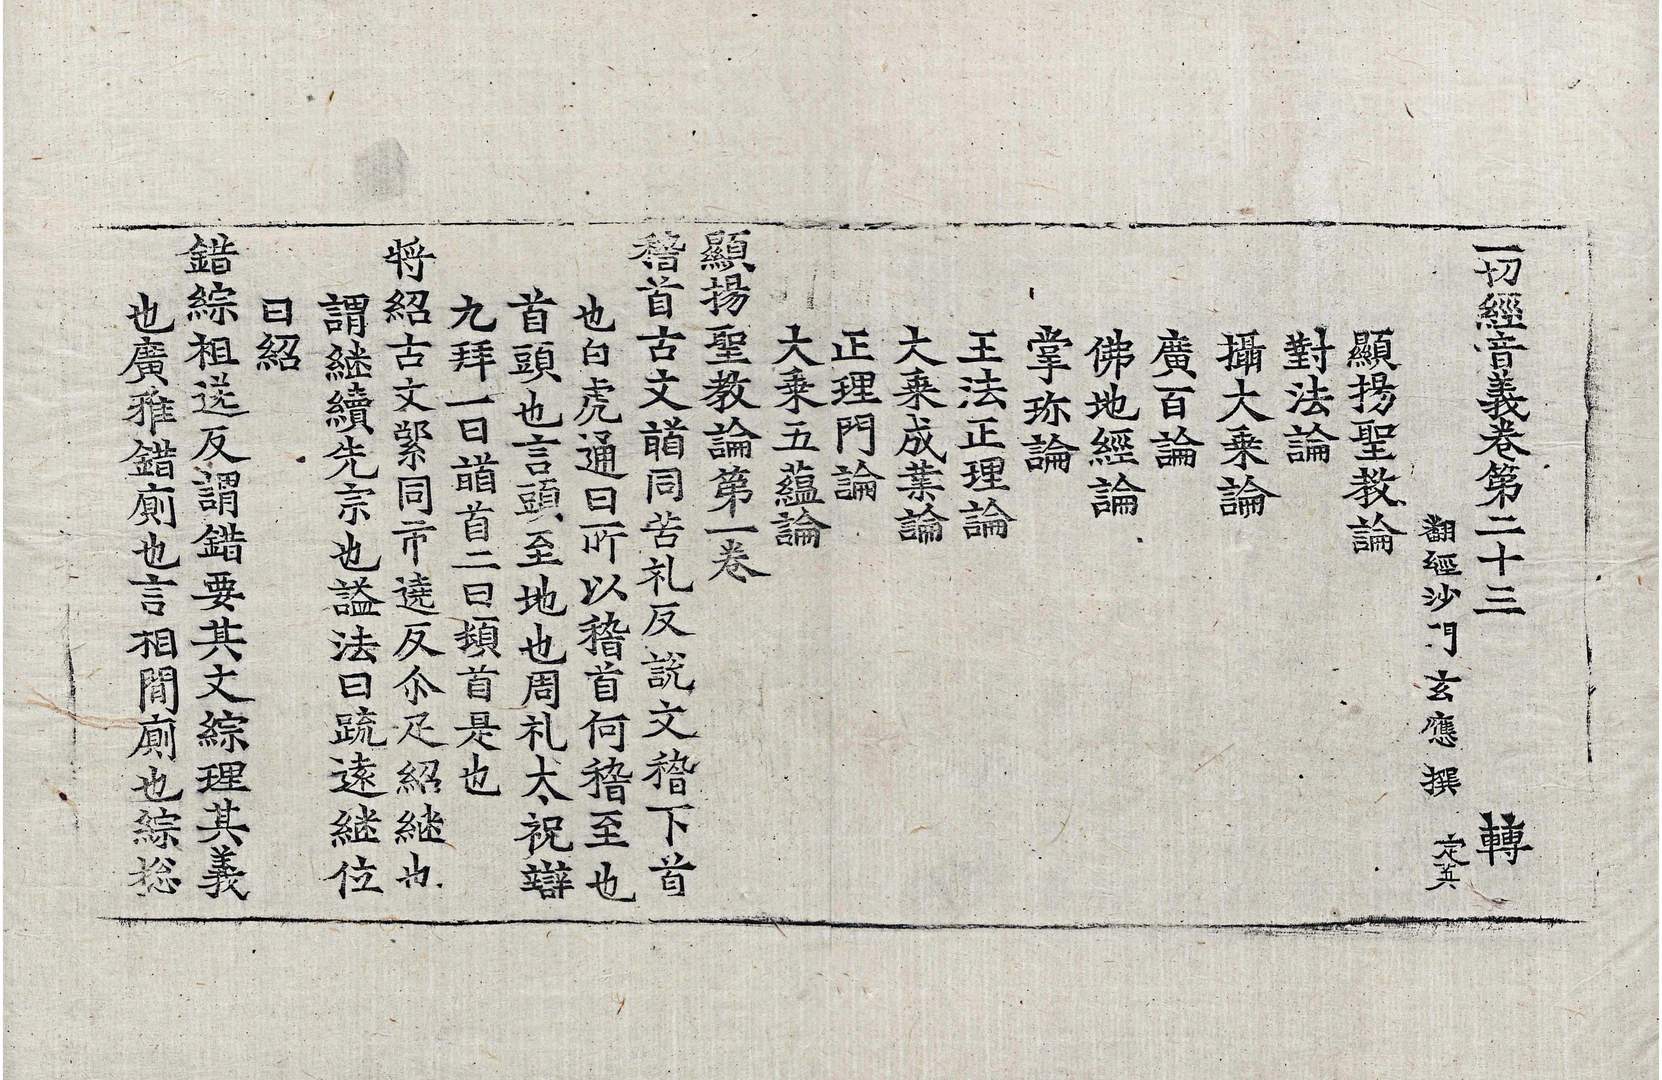 一切經音義卷第二十三　轉
翻經沙門玄應撰　定英
顯揚聖教論
對法論
攝大乘論
廣百論
佛地經論
掌珎論
王法正理論
大乘成業論
正理門論
大乘五蘊論
顯揚聖教論第一卷
稽首古文䭫同苦礼反說文稽下首
也白虎通曰所以稽首何稽至也
首頭也言頭至地也周礼太祝辯
九拜一曰䭫首二曰頓首是也
將紹古文綤同市遶反尒疋紹継也
謂継續先宗也謚法曰䟽遠継位
曰紹
錯綜祖送反謂錯要其文綜理其義
也廣雅錯廁也言相間廁也綜捴